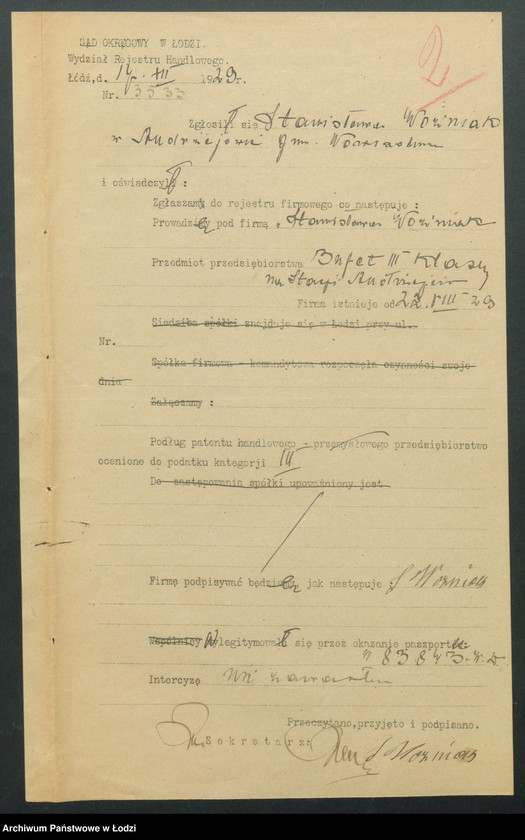 2
SĄD OKRĘGOWY W ŁODZI.
Wydział Rejestru Handlowego.
Łódź,d. XII 1929r.
Nr. 3533
Zgłosił się Stanisława Woźniak
w Andrzejowie gm.
i oświadczył :
Zgłaszam do rejestru firmowego co następuje :
Prowadzę pod firmą „Stanisława Woźniak
Przedmiot przedsiębiorstwa Bufet III Klasy
na Stacji Andrzejów
Firma istnieje od 22.VIII 29
Siedziba spółki znajduje się w Łodzi przy ul.
Nr.
Spółka firmowa - komandytowa rozpoczęła czynności swoje
dnia
Załączamy :
Podług patentu handlowego - przemysłowego przedsiębiorstwo
ocenione do podatku kategorji III
Do zastępowania spółki upoważniony jest
Firmę podpisywać będzie jak następuje : S Woźniak
Wspólnicy wylegitymował się przez okazanie paszportu
Intercyzę nie zawarłem
Przeczytano, przyjęto i podpisano.
Sekretarz: S Woźniak
Archiwum Państwowe w Łodzi